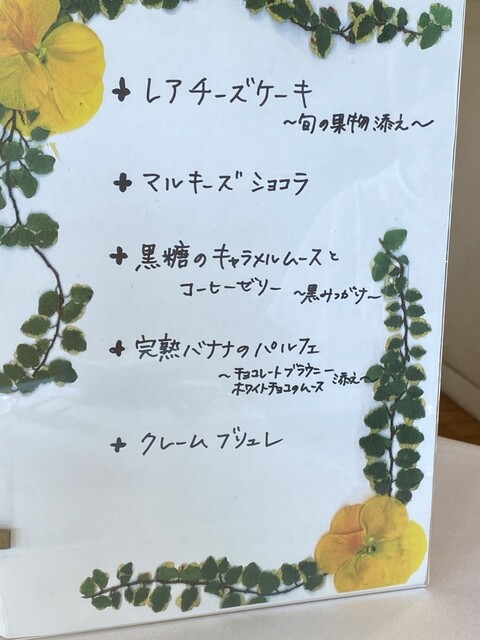 + レアチーズケーキ
～旬の果物添え～
+ マルキーズショコラ
+ 黒糖のキャラメルムースと
コーヒーゼリー ～黒みつがけ～
+ 完熟バナナのパルフェ
～チョコレートブラウニー
ホワイトチョコのムース 添え～
+ クレームブリュレ